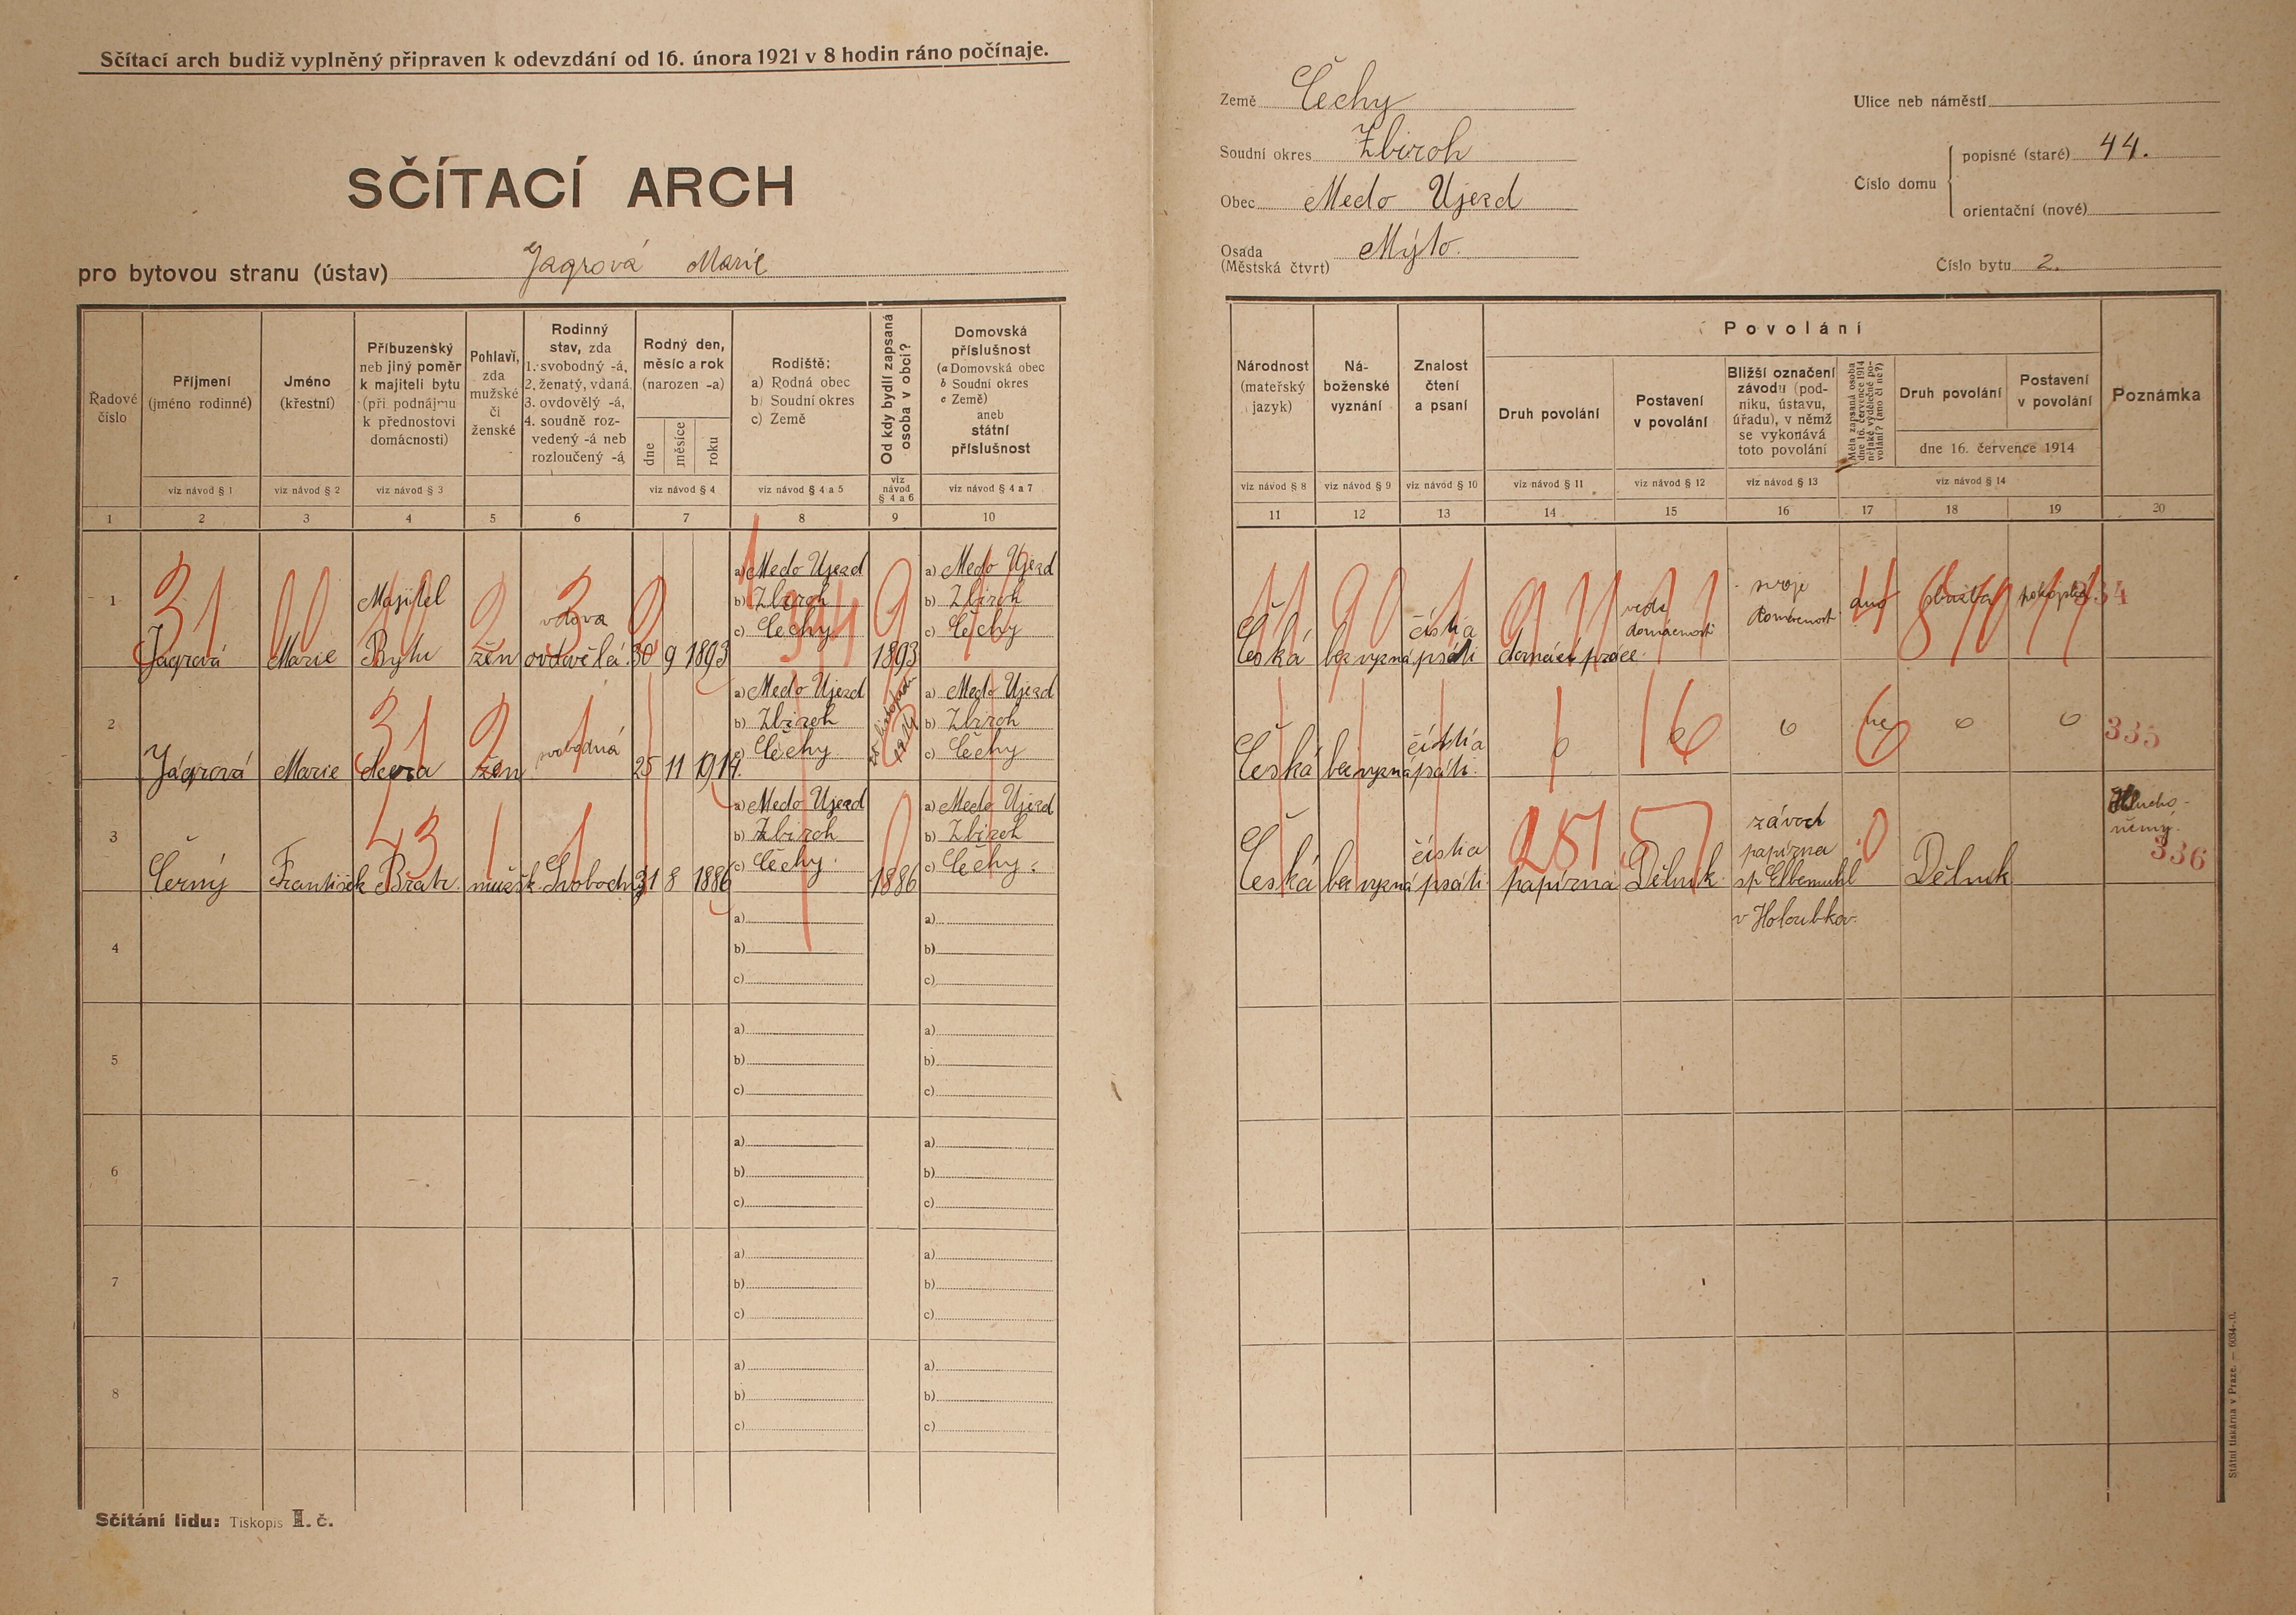 Sčítací arch budiž vyplněný připraven k odevzdání od 16. února 1921 v 8 hodin ráno počínaje.
SČÍTACÍ ARCH
pro bytovou stranu (ústav) Jagrová Marie
Země Čechy
Soudní okres Zbiroh
Obec Medo Ujezd
Osada (Městská čtvrt) Mýto.
Ulice neb náměstí
Číslo domu
popisné (staré) 44.
orientační (nové)
Číslo bytu 2.
Řadové číslo
Příjmení (jméno rodinné)
Jméno (křestní)
Příbuzenský neb jiný poměr k majiteli bytu (při podnájmu k přednostovi domácnosti)
Pohlaví, zda mužské či ženské
Rodinný stav, zda 1. svobodný -á, 2. ženatý, vdaná, 3. ovdovělý -á, 4. soudně rozvedený -á neb rozloučený -á
Rodný den, měsíc a rok (narozen -a)
dne měsíce roku
Rodiště: a) Rodná obec b) Soudní okres c) Země
Od kdy bydlí zapsaná osoba v obci?
Domovská příslušnost (a Domovská obec b Soudní okres c Země) aneb státní příslušnost
Národnost (mateřský jazyk)
Náboženské vyznání
Znalost čtení a psaní
Povolání
Druh povolání
Postavení v povolání
Bližší označení závodu (podniku, ústavu, úřadu), v němž se vykonává toto povolání
Měla zapsaná osoba dne 16. července 1914 nějaké výdělečné povolání? (ano či ne?)
Druh povolání
Postavení v povolání
dne 16. července 1914
Poznámka
viz návod § 1
viz návod § 2
viz návod § 3
viz návod § 4
viz návod § 4 a 5
viz návod § 4 a 6
viz návod § 4 a 7
viz návod § 8
viz návod § 9
viz návod § 10
viz návod § 11
viz návod § 12
viz návod § 13
viz návod § 14
1 2 3 4 5 6 7 8 9 10 11 12 13 14 15 16 17 18 19 20
1 Jagrová Marie Majitel Bytu žen vdova ovdovělá 30 9 1893
a) Medo Ujezd
b) Zbiroh
c) Čechy
1893
a) Medo Ujezd
b) Zbiroh
c) Čechy
Česká bez vyzná čísti a psáti domácí práce vede domácnost svoje domácnost ano 334
2 Jágrová Marie dcera žen svobodná 25 11 1914.
a) Medo Ujezd
b) Zbiroh
c) Čechy
a) Medo Ujezd
b) Zbiroh
c) Čechy
Česká bez vyzná čísti a psáti. 0 0 0 ne 0 0 335
3 Černý František Bratr. mužsk. Svobodn 31 8 1886
a) Medo Ujezd
b) Zbiroh
c) Čechy.
1886
a) Medo Ujezd
b) Zbiroh
c) Čechy.
Česká bez vyzná čísti a psáti papírna Dělník závod papírna sp Elbemühl v Holoubkov. Dělník
Hlucho-
němý.
336
4 a) b) c) a) b) c)
5 a) b) c) a) b) c)
6 a) b) c) a) b) c)
7 a) b) c) a) b) c)
8 a) b) c) a) b) c)
Sčítání lidu: Tiskopis II. č.
Státní tiskárna v Praze. — 6034-.0.